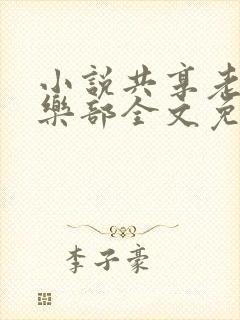 小說共享老
樂部全文免
李子豪